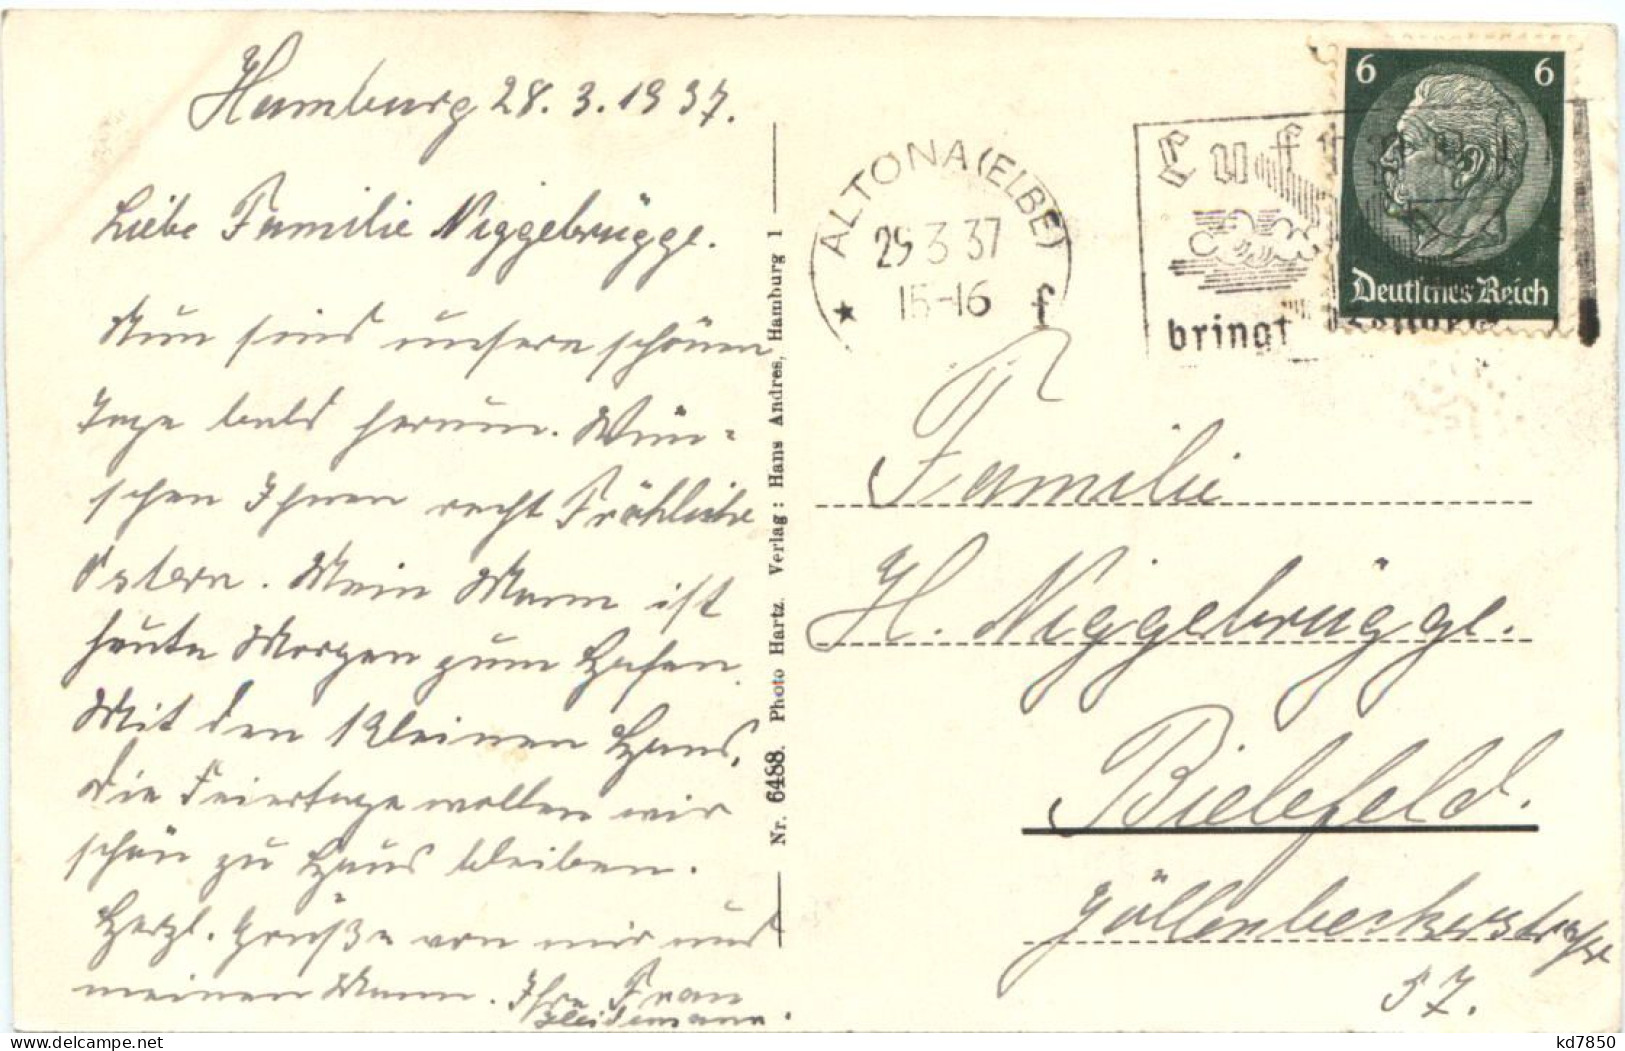 Hamburg 28.3.1937.
Liebe Familie Niggebrügge.
Nun sind unsere schönen
Tage bald herum. Wün=
schen Ihnen recht Fröhliche
Ostern. Mein Mann ist
heute Morgen zum Hafen.
Mit den kleinen Hans,
die Feiertage wollen wir
schön zu Haus bleiben.
Herzl. Grüße von mir und
meinen Mann. Ihre Frau
Nr. 6488. Photo Hartz. Verlag: Hans Andres, Hamburg 1
ALTONA (ELBE)
29 3 37
15-16
* f
Luftpost
bringt
6 6
Deutsches Reich
Familie
H. Niggebrügge.
Bielefeld.
Jöllenbeckerstraße
57.
kd7850